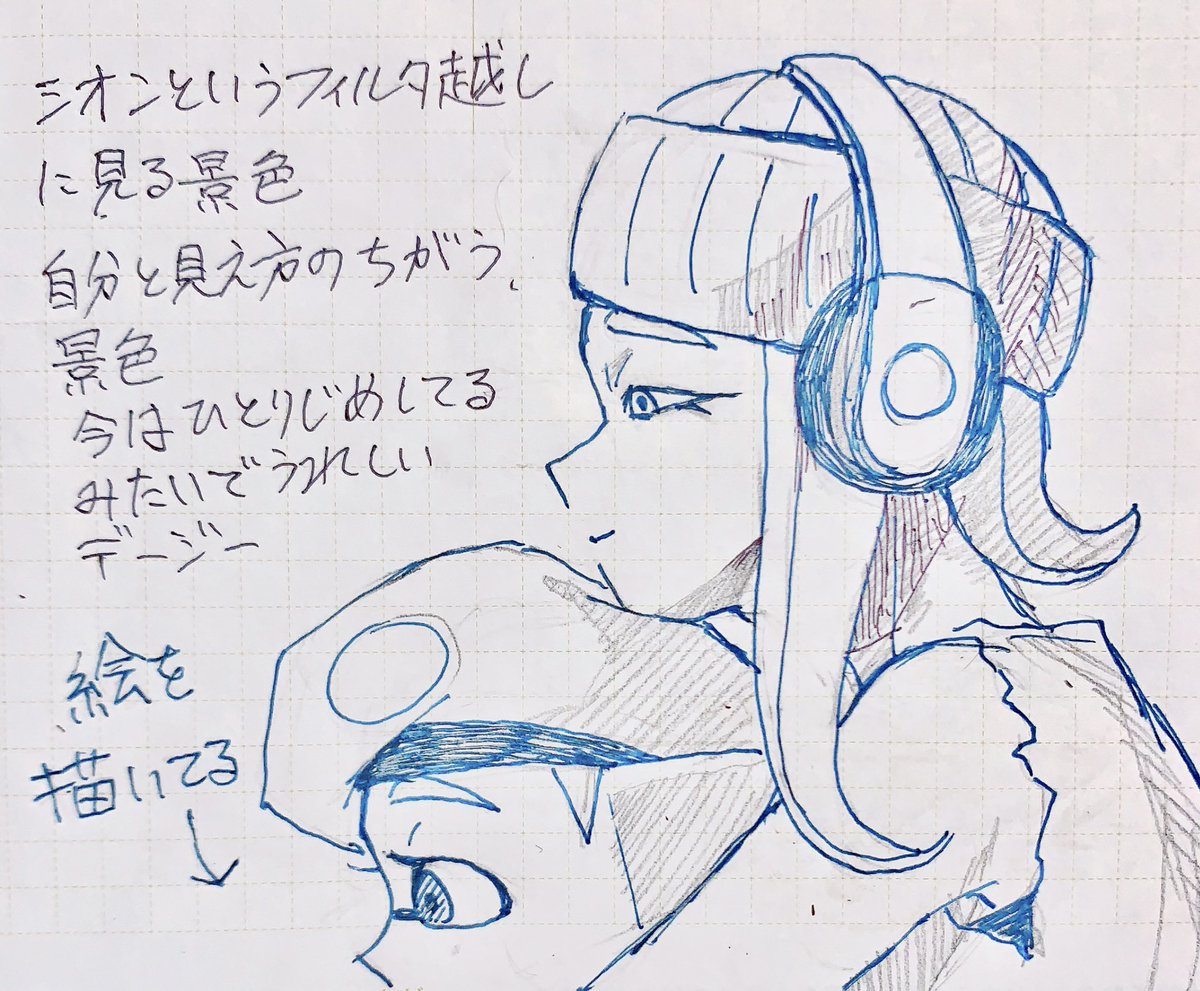 シオンというフィルタ越し
に見る景色
自分と見え方のちがう、
景色
今はひとりじめしてる
みたいでうれしい
デージー
絵を
描いてる